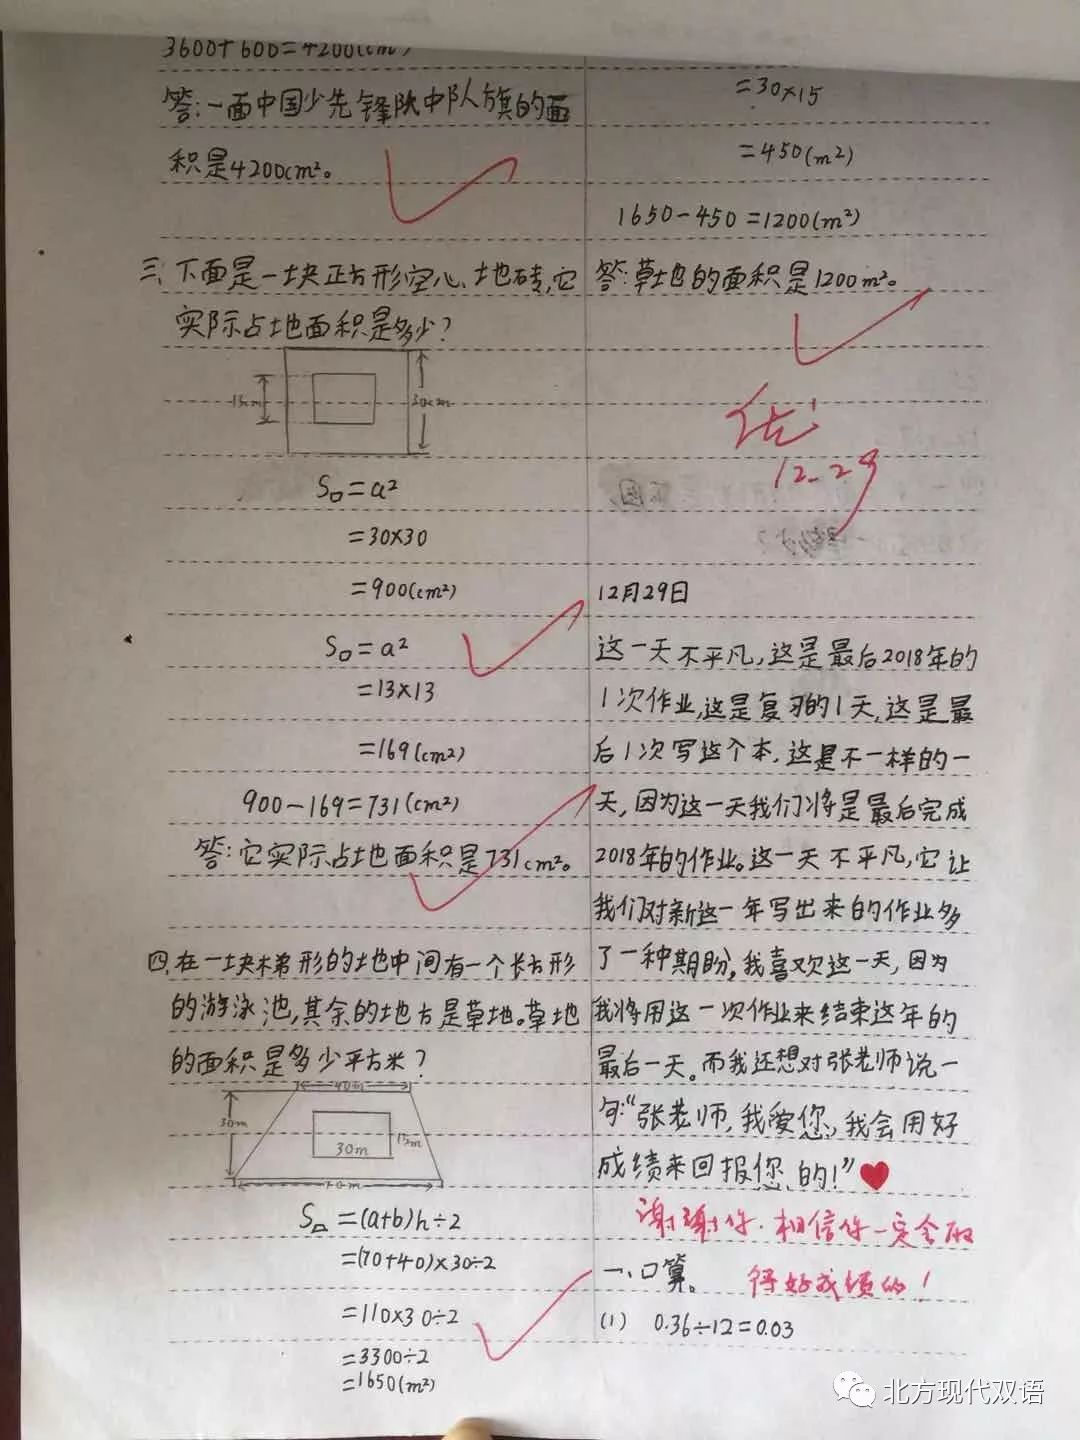 3600+600=4200(cm²)
答:一面中国少先锋队中队旗的面
积是4200cm²。
三、下面是一块正方形空心地砖,它
实际占地面积是多少?
13cm
30cm
S□=a²
=30×30
=900(cm²)
S□=a²
=13×13
=169(cm²)
900-169=731(cm²)
答:它实际占地面积是731cm²。
四、在一块梯形的地中间有一个长方形
的游泳池,其余的地方是草地。草地
的面积是多少平方米?
40m
30m
15m
30m
70m
S=(a+b)h÷2
=(70+40)×30÷2
=110×30÷2
=3300÷2
=1650(m²)
=30×15
=450(m²)
1650-450=1200(m²)
答:草地的面积是1200m²。
优
12.29
12月29日
这一天不平凡,这是最后2018年的
1次作业,这是复习的1天,这是最
后1次写这个本,这是不一样的一
天,因为这一天我们将是最后完成
2018年的作业。这一天不平凡,它让
我们对新这一年写出来的作业多
了一种期盼,我喜欢这一天,因为
我将用这一次作业来结束这年的
最后一天。而我还想对张老师说一
句:“张老师,我爱您,我会用好
成绩来回报您的!”
谢谢你.相信你一定会取
得好成绩的!
一、口算。
(1) 0.36÷12=0.03
北方现代双语